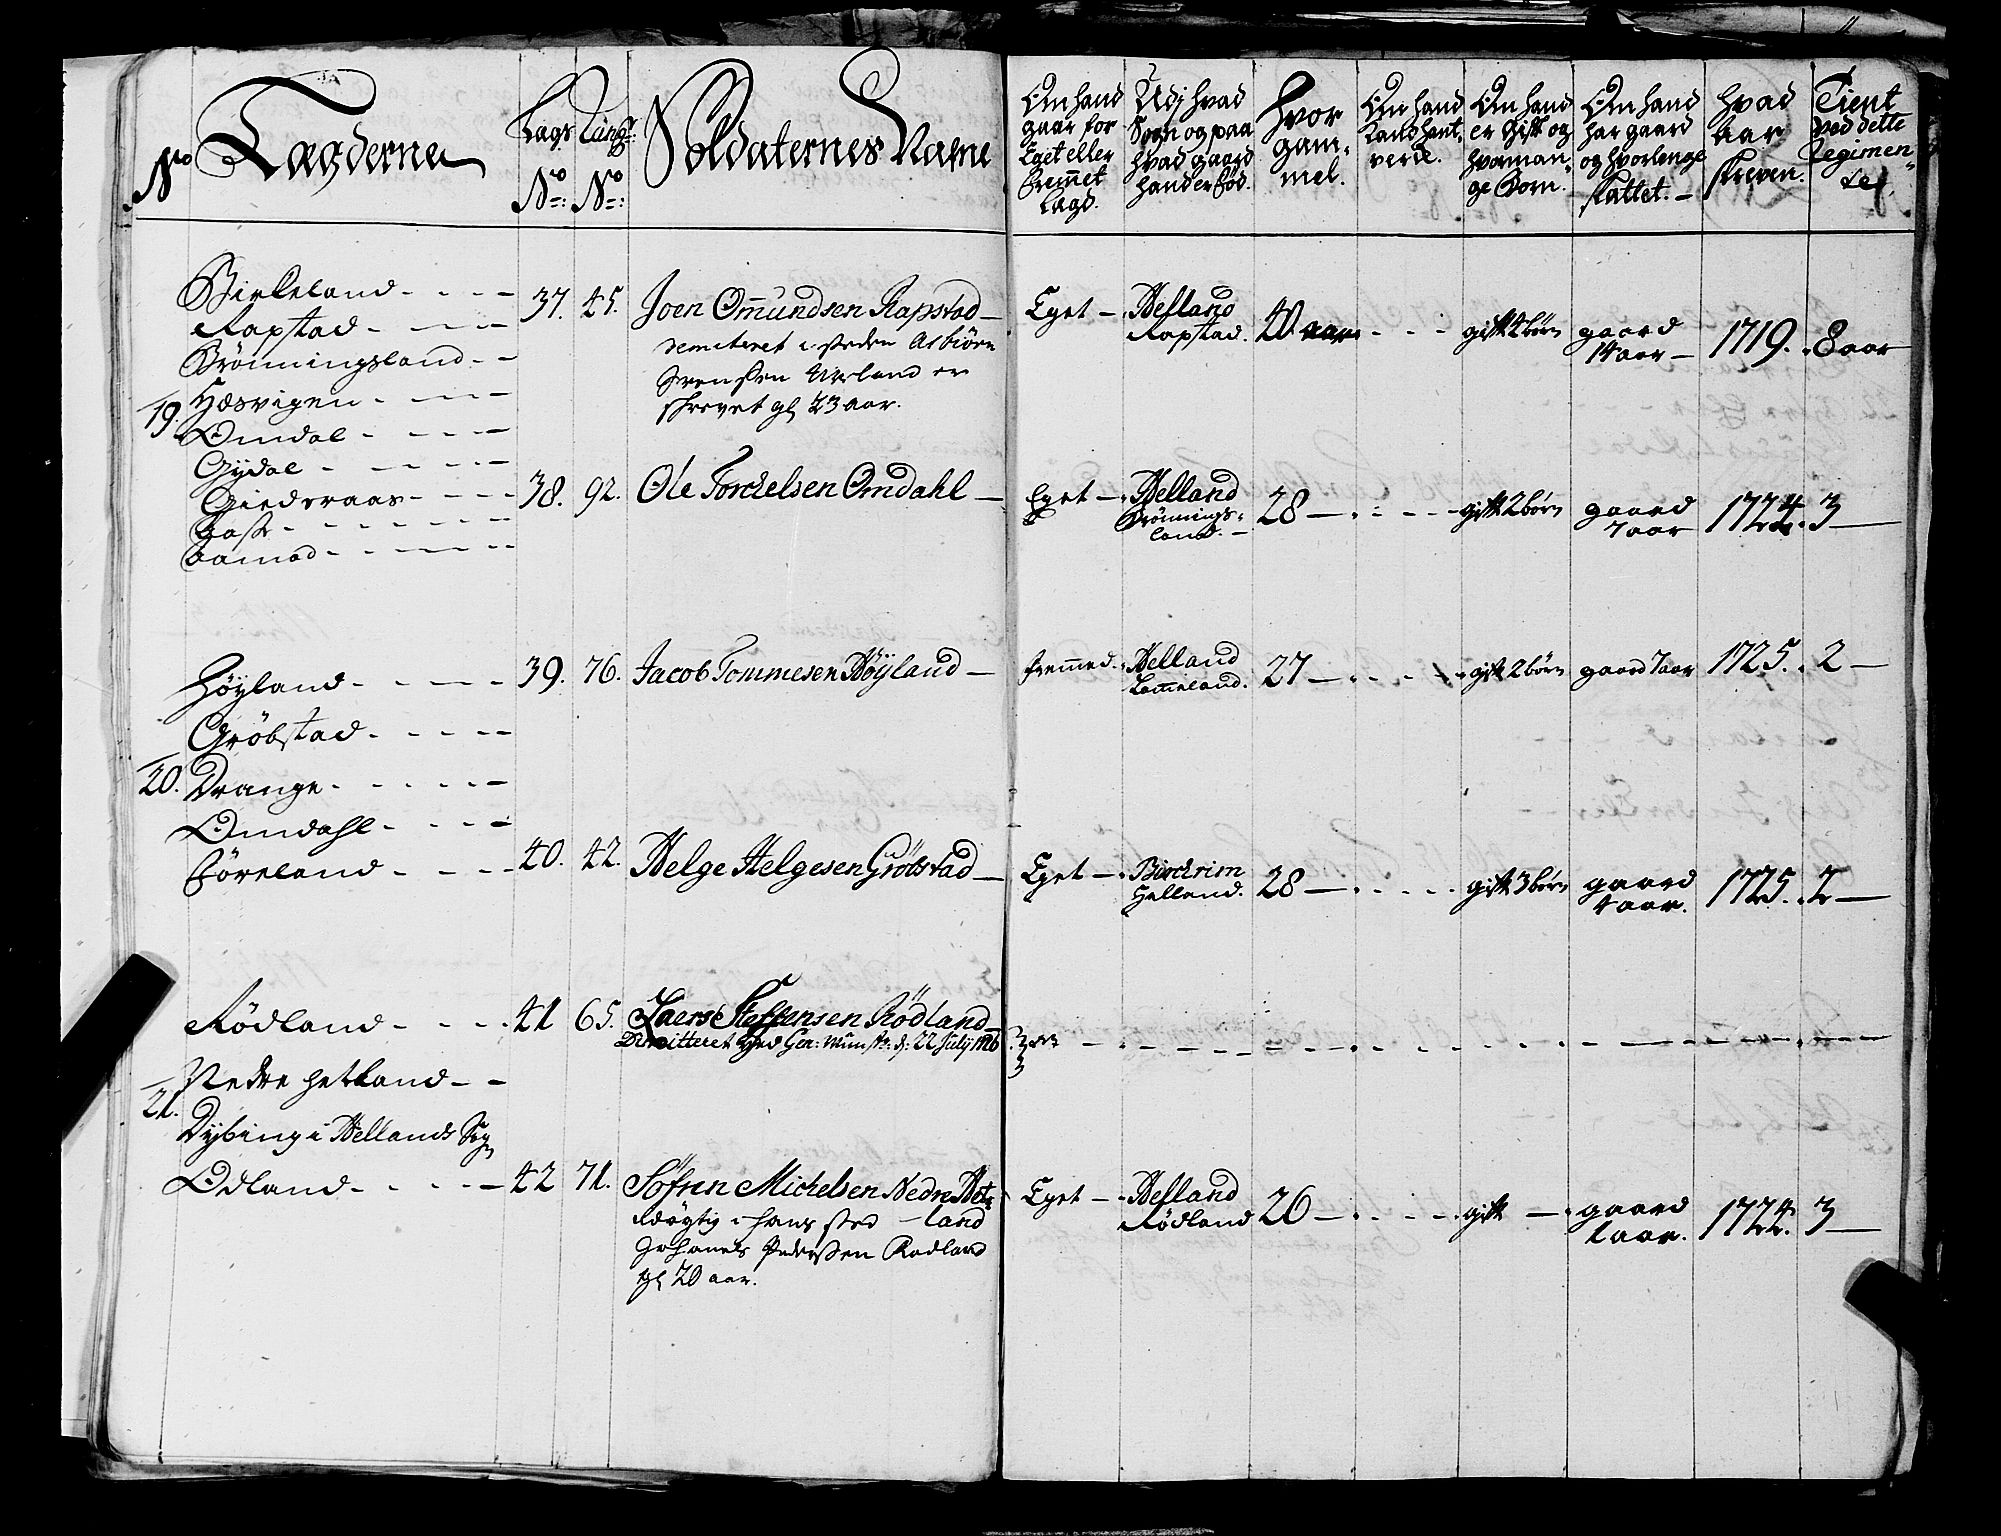 No Lægderne
Lægs No Rung: No
Soldaternes Nafne
Om hand gaar for Eget eller fremet Lægd.
Udj hvad Sogn og paa hvad gaard hand er fød.
Hvor gam- mel.
Om hand kand hant- verck.
Om hand er Gift og hvor man- ge Børn.
Om hand har gaard og hvorlenge skattet. –
Hvad Aar skreven.
Tient ved dette Regimen- tet
19.
Birkeland - - -
Rapstad - - -
Brönningsland - -
Hæsvigen - - -
Omdal - - -
Gydal - - -
Giedraas - - -
- - -
aamod - - -
37. 45. Joen Ommundsen Rapstad –
demiteret i steden Asbiörn
Svenssen Urland er
skrevet gl 23 aar.
Eget – Helland Rapstad. 40 aar - - - gift 4 börn gaard 14 aar – 1719. 8 aar
38. 92. Ole Torckelsen Omdahl –
Eget – Helland Brönnings- land. – 28 – - - - gift 2 börn gaard 7 aar 1724. 3 –
20.
Höyland - - -
Gröbstad - - -
Drange - - -
Omdahl - - -
Föreland - - -
39. 76. Jacob Tommesen Höyland –
fremmed. Helland Lommeland. 27 – - - - gift 2 börn gaard 7 aar 1725. 2 –
40. 42. Helge Helgesen Gröbstad –
Eget – Birckrim Helland. 28 – - - - gift 3 börn gaard 4 aar. 1725. 2 –
21.
Rödland - - -
Nedre hetland - -
Dybing i Hellands Sogn
Odland - - -
41 65. Laers Steffensen Rödland –
Dimitteret ved Gen: Munstr: d: 22 July 1726
42 71. Söfren Michelsen Nedre Het-
land
dögtig i hans sted
Johanes Pederssen Rodland
gl 20 aar.
Eget – Helland Rödland 26 – - - - gift – gaard 1 aar. 1724. 3 –